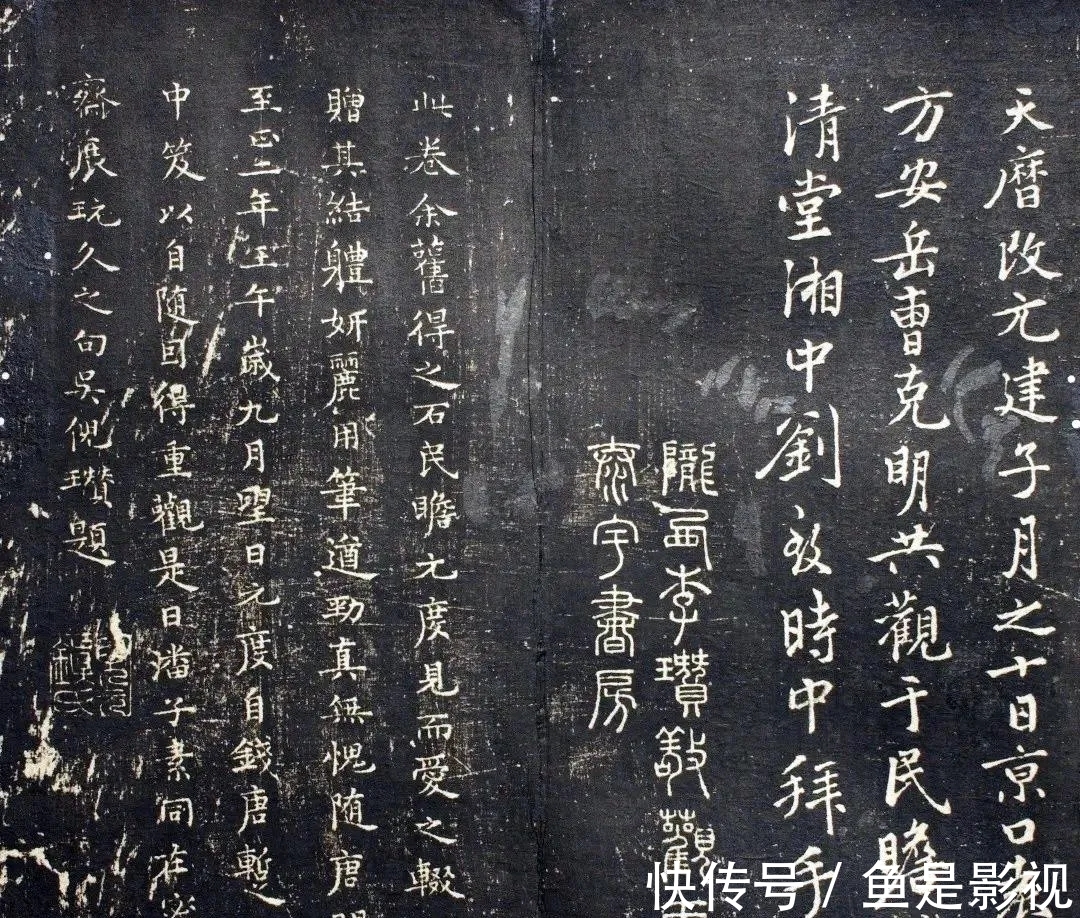 天曆改元建子月之十日京口
方安岳曹克明共觀于民瞻
清堂湘中劉致時中拜手
隴西李瓚敬觀
泰宇書房
此卷余舊得之石民瞻元度見而愛之輟
贈其結體妍麗用筆遒勁真無愧隋唐間
至正二年壬午歲九月望日元度自錢唐暫
中笈以自随因得重觀是日潘子素同在
齋展玩久之句吳倪瓚題
快传号/鱼是影视